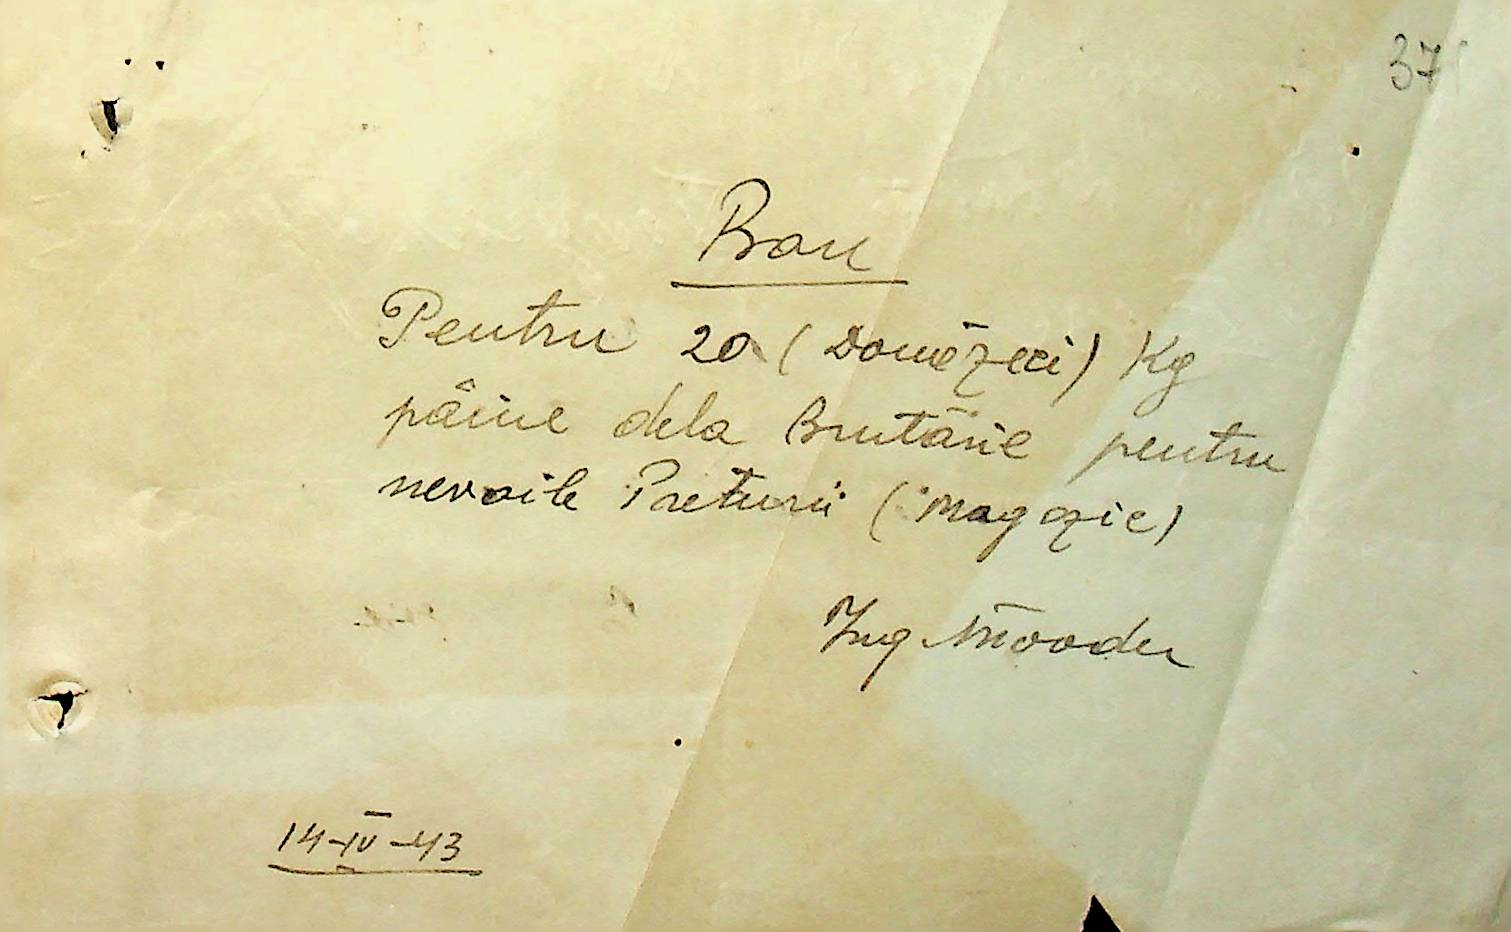 37
Bon
Pentru 20 (Douăzeci) Kg
pâine dela Brutărie pentru
nevoile Preturii (Magazie)
Ing
14-IV-43